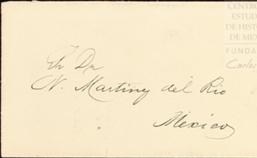 CENTRO
ESTUD
DE HIST
DE MÉX
FUNDA
Carlos
Sr Dr
N. Martinez del Rio
Mexico